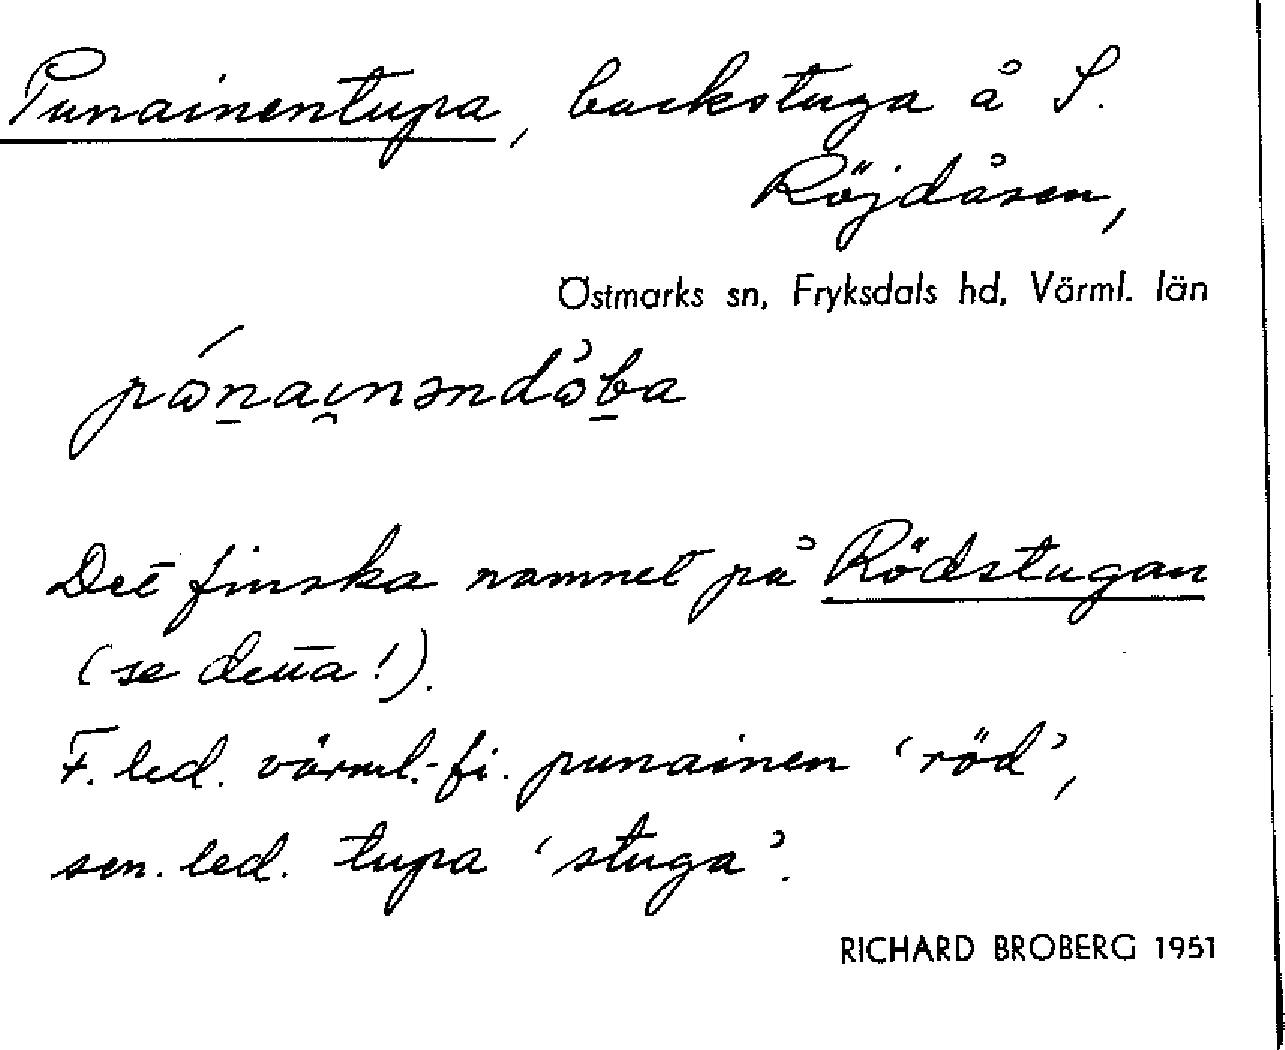 Punainentupa, backstuga å S.
Röjdåsen,
Östmarks sn, Fryksdals hd, Värml. län
Det finska namnet på Rödstugan
(se detta!).
F. led. värml.-fi. punainen ‘röd’,
sen. led. tupa ‘stuga’.
RICHARD BROBERG 1951